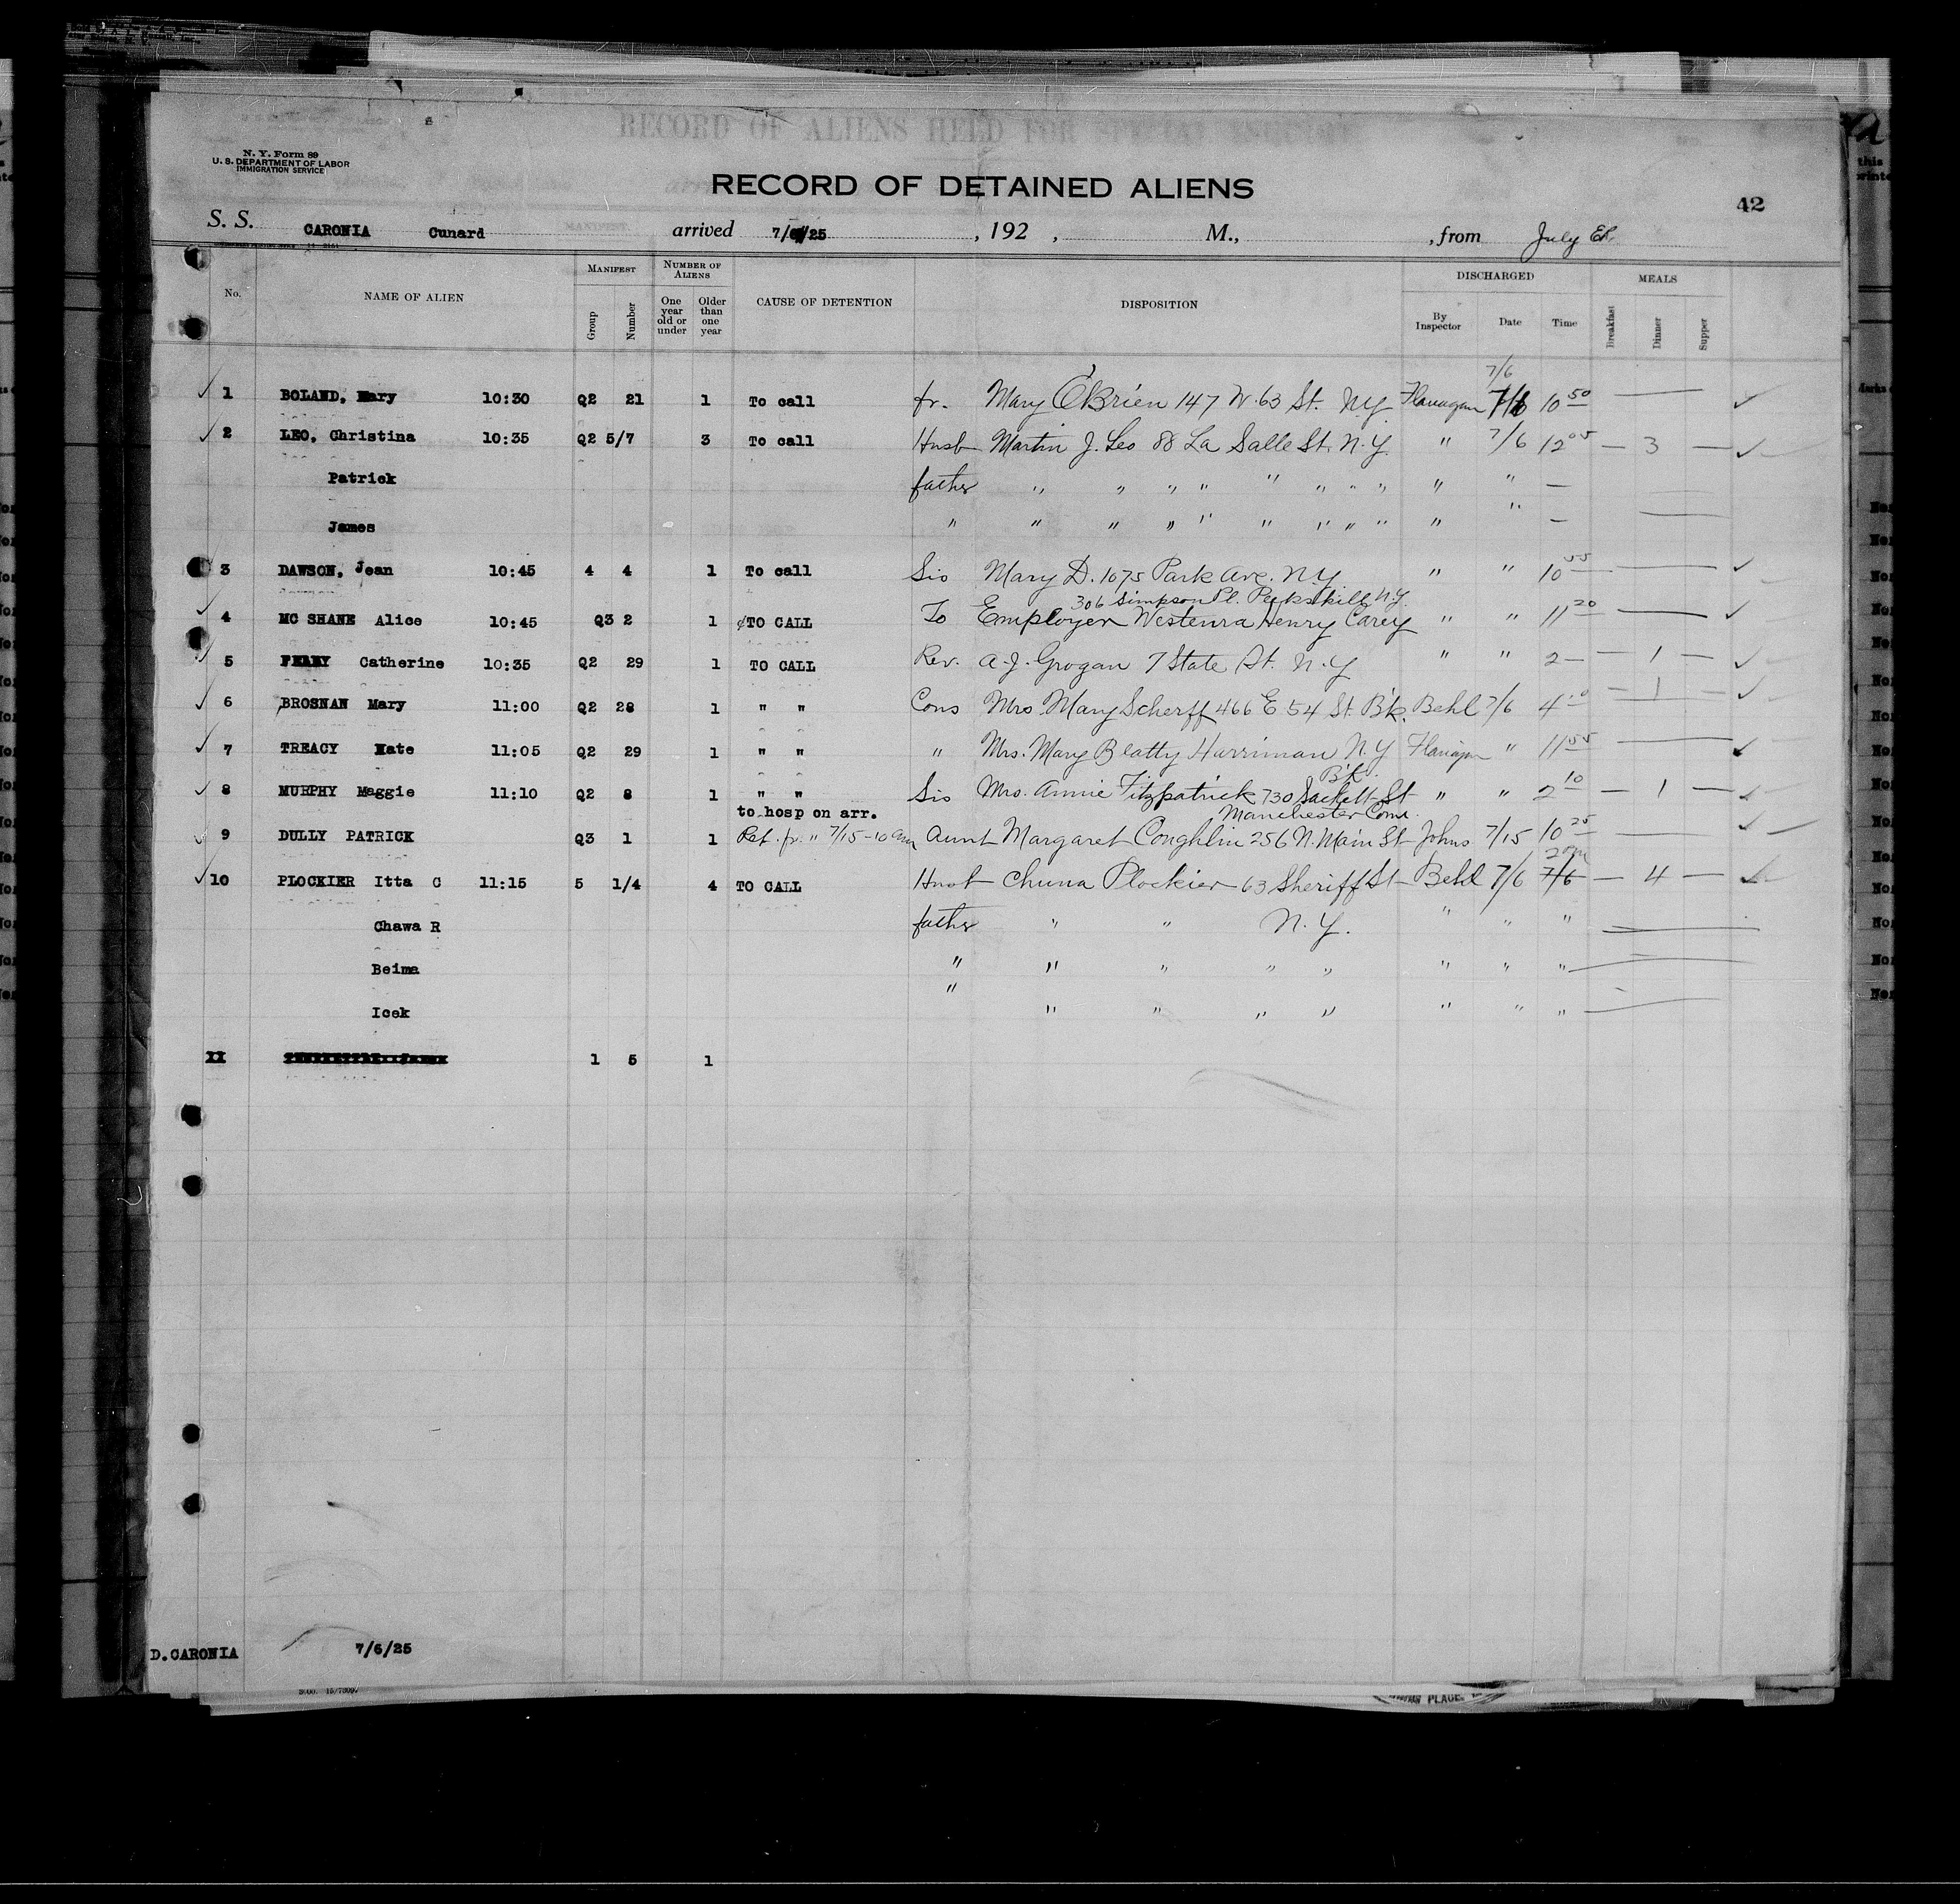 RECORD OF ALIENS HELD FOR SPECIAL INQUIRY
N. Y. Form 89
U. S. DEPARTMENT OF LABOR
IMMIGRATION SERVICE
RECORD OF DETAINED ALIENS
42
S. S. CARONIA Cunard arrived 7/6/25 , 192 , M., , from July
No. NAME OF ALIEN MANIFEST Group Number NUMBER OF ALIENS One year old or under Older than one year CAUSE OF DETENTION DISPOSITION DISCHARGED By Inspector Date Time MEALS Breakfast Dinner Supper
7/6
1 BOLAND, Mary 10:30 Q2 21 1 To call fr. Mary O'Brien 147 W. 63 St. N.Y. Flanagan 7/6 10 50
2 LEO, Christina 10:35 Q2 5/7 3 To call Husb Martin J. Leo 88 La Salle St. N.Y. " 7/6 12 05 — 3 —
Patrick father " " " " " " " " " " —
James " " " " " " " " " " " —
3 DAWSON, Jean 10:45 4 4 1 To call Sis Mary D. 1075 Park Ave. N.Y. " " 10 55
306 Simpson Pl. Peekskill N.Y.
4 MC SHANE Alice 10:45 Q3 2 1 TO CALL To Employer Westenra Henry Carey " " 11 20
5 Catherine 10:35 Q2 29 1 TO CALL Rev. A. J. Grogan 7 State St. N.Y " " 2— — 1 —
6 BROSNAN Mary 11:00 Q2 28 1 " " Cous Mrs. Mary Scherff 466 E 54 St. B'k. Behl 7/6 4 — 1 —
7 TREACY Kate 11:05 Q2 29 1 " " " Mrs. Mary Beatty Harriman N.Y Flanagan " 11 55
B'k.
8 MURPHY Maggie 11:10 Q2 8 1 " " Sis Mrs. Annie Fitzpatrick 730 Sackett St " " 2 10 — 1 —
to hosp on arr. Manchester Conn.
9 DULLY PATRICK Q3 1 1 Ret. fr. " 7/15-10 am Aunt Margaret Coughlin 256 N. Main St Johns 7/15 10 25
2 pm
10 PLOCKIER Itta C 11:15 5 1/4 4 TO CALL Husb Chuna Plockier 63 Sheriff St Behl 7/6 7/6 — 4 —
Chawa R father " " N.Y. " " "
Beima " " " " " " " "
Icek " " " " " " " "
11 1 5 1
D.CARONIA 7/6/25